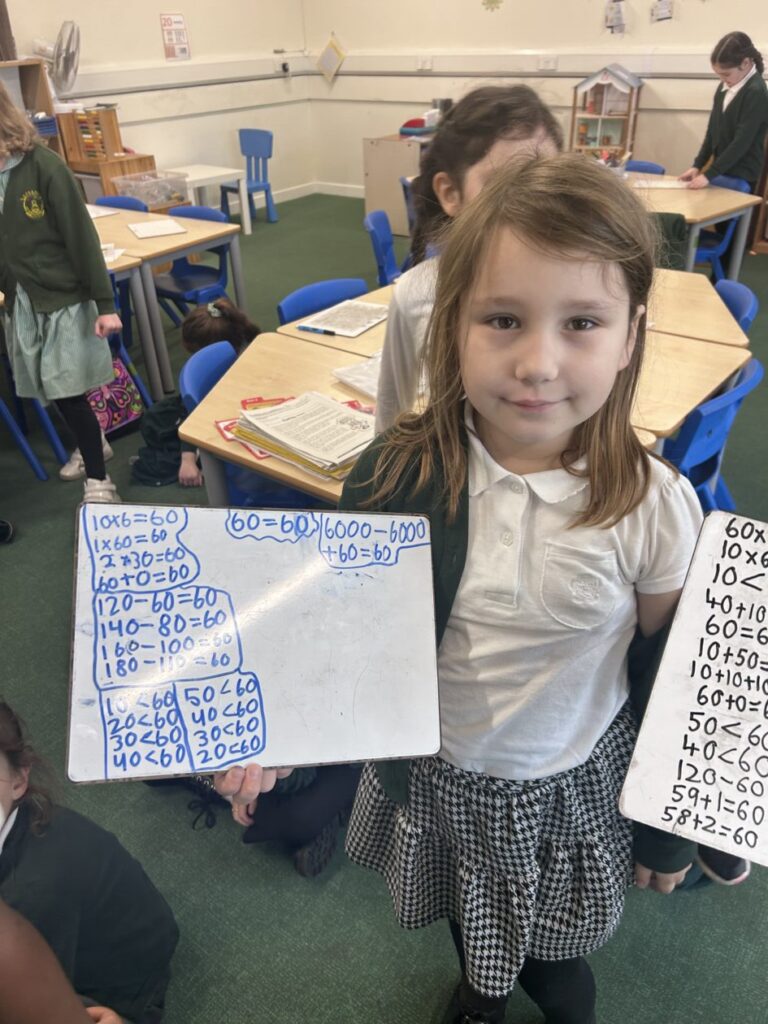 10x6=60
1x60=60
2x30=60
60+0=60
60=60
6000-6000
+60=60
120-60=60
140-80=60
160-100=60
180-110=60
10<60
20<60
30<60
40<60
50<60
40<60
30<60
20<60
60x
10x6
10<
40+10
60=6
10+50=
10+10+10
60+0=6
50<60
40<60
120-60
59+1=60
58+2=60
20